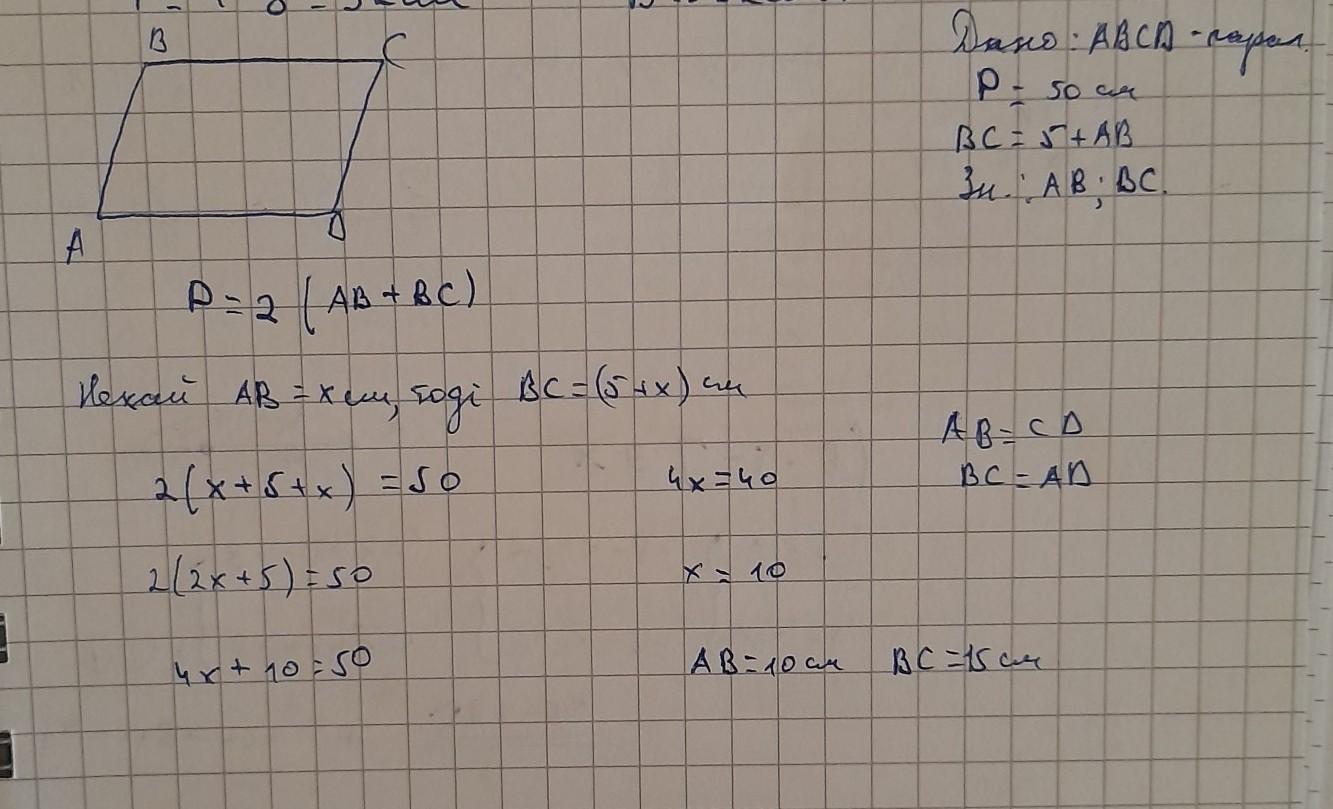 B C
A D
Дано: ABCD - парал.
P = 50 см
BC = 5 + AB
Зн.: AB; BC.
P = 2 (AB + BC)
Нехай AB = x см, тоді BC = (5 + x) см
AB = CD
BC = AD
2(x + 5 + x) = 50
2(2x + 5) = 50
4x + 10 = 50
4x = 40
x = 10
AB = 10 см BC = 15 см